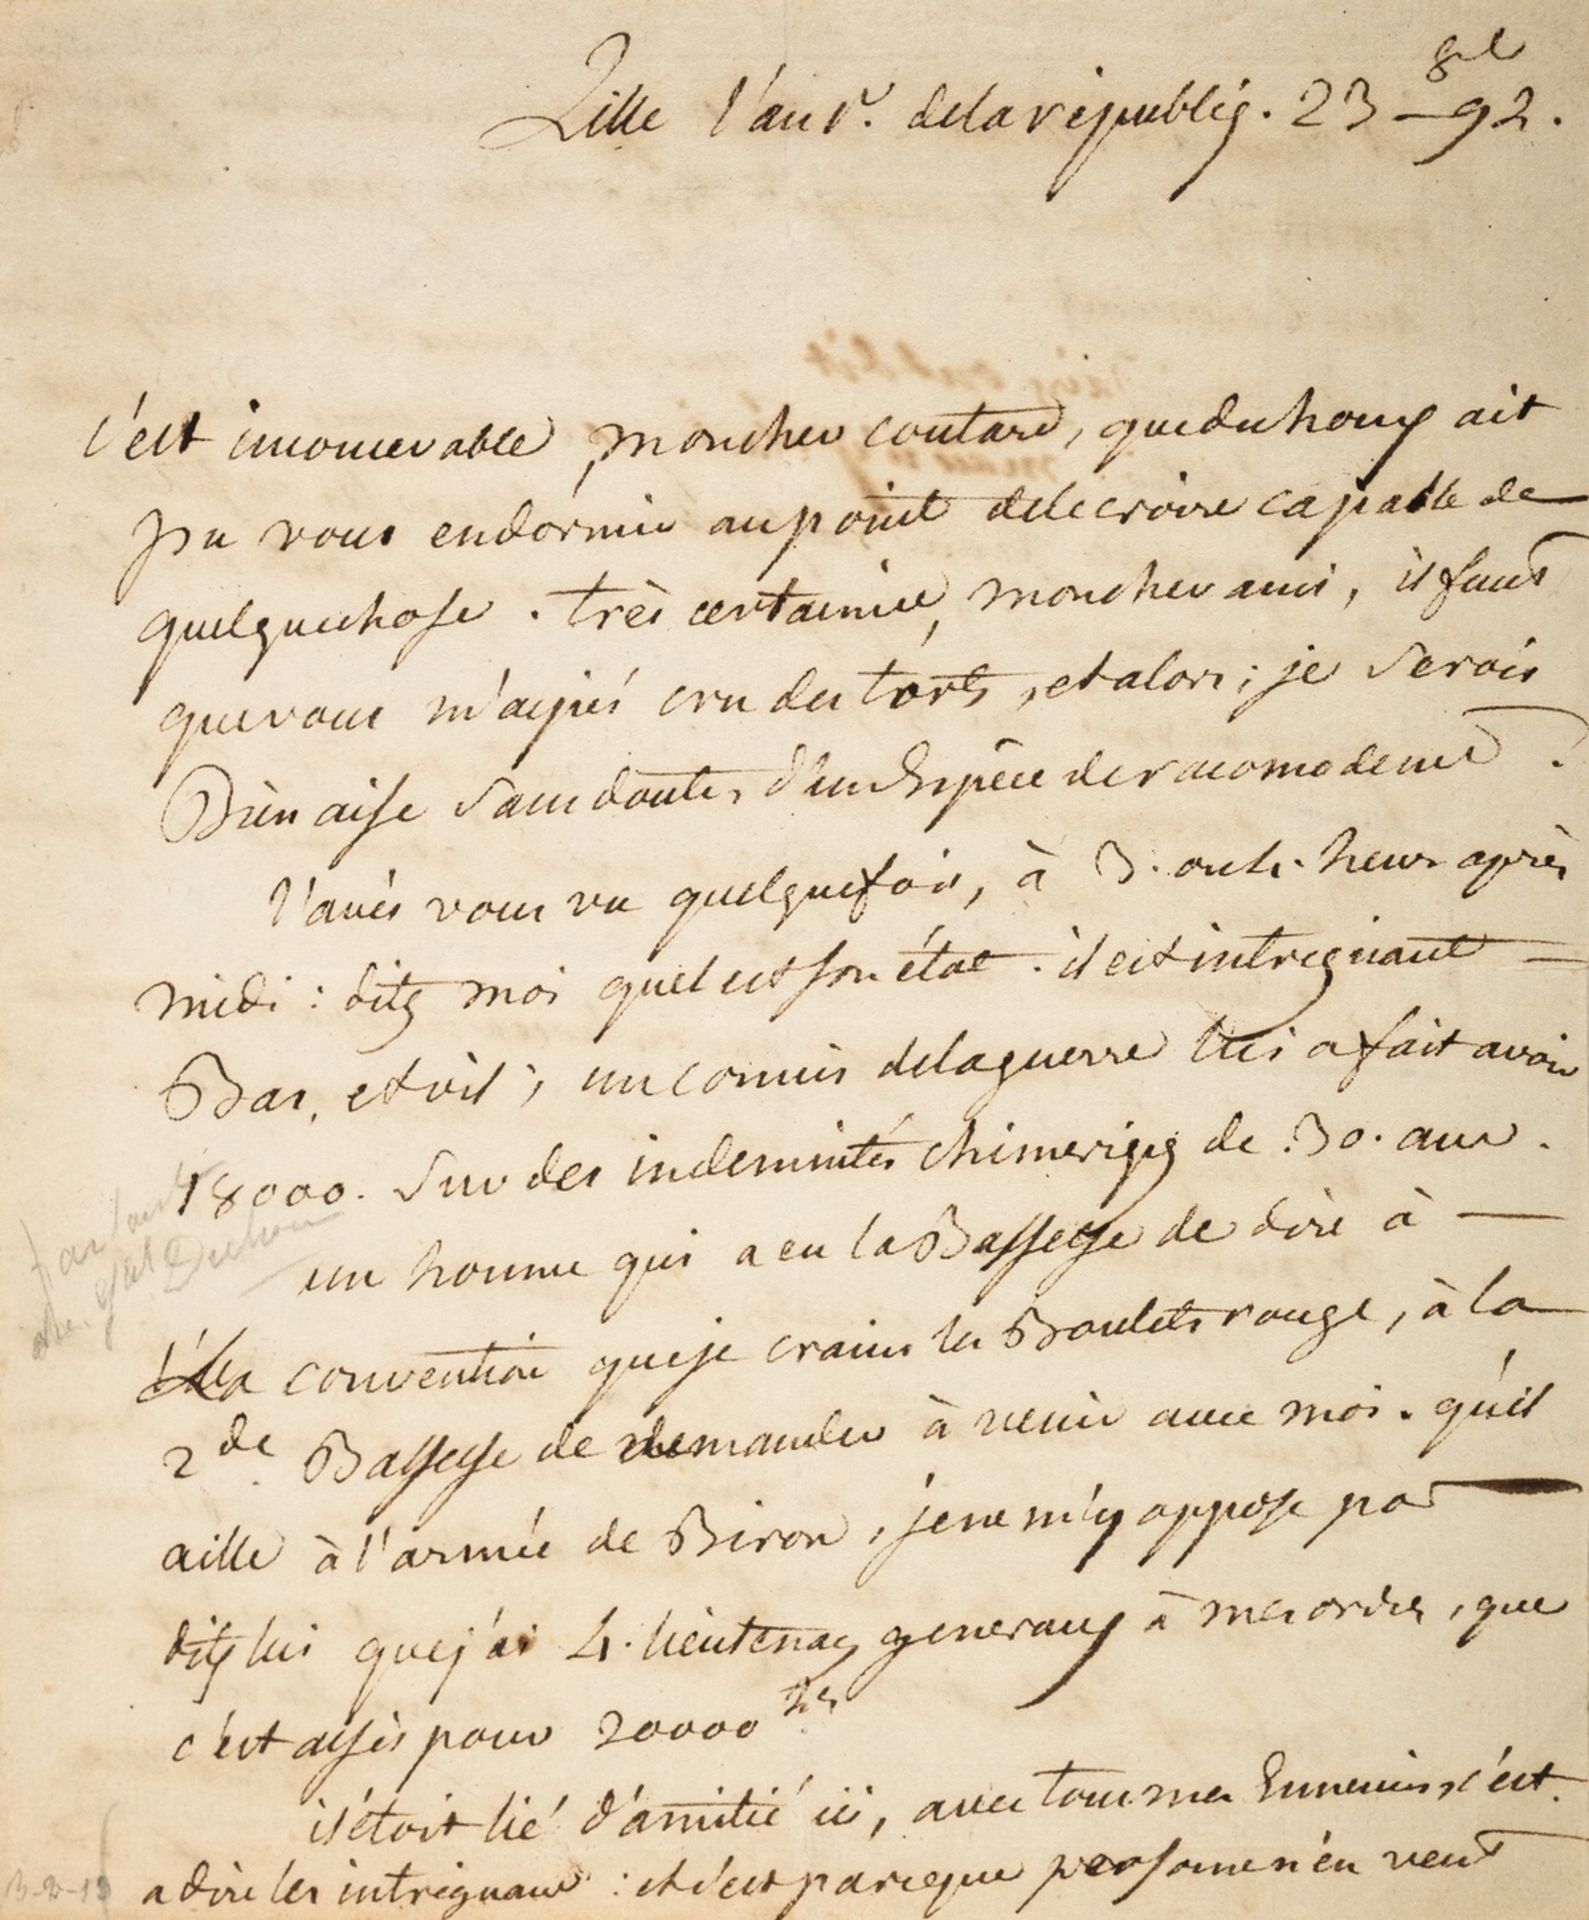 Lille l'an 1r. de la république. 23 8bre 92.
c'est inconcevable, mon cher coutard, que duhoux ait
pu vous endormir au point de le croire capable de
quelque chose. très certainée, mon cher ami, il faut
que vous m'ayiés cru des torts, et alors; je serois
Bien aise sans doute, d'un Espèce de racomodemt.
l'avés vous vu quelquefois, à 3. ou 4. heurs après
midi: dites moi quel est son état. il est intreguant
Bas, et vil; un comis de la guerre lui a fait avoir
18000. sur des indemnités chimeriqs de 30. ans.
un homme qui a eu la Bassesse de dire à
la convention que je crains les Boulets rouge, à la
2de Bassesse de demander à venir avec moi. qu'il
aille à l'armée de Biron, je ne m'y oppose pas
dites lui que j'ai 4. lieutenas generaux à mes ordres, que
c'est assés pour 20000 hes
il étoit lié d'amitié ici, avec tous mes Ennemis, c'est
a dire les intriguans: et c'est parceque personne n'en veut